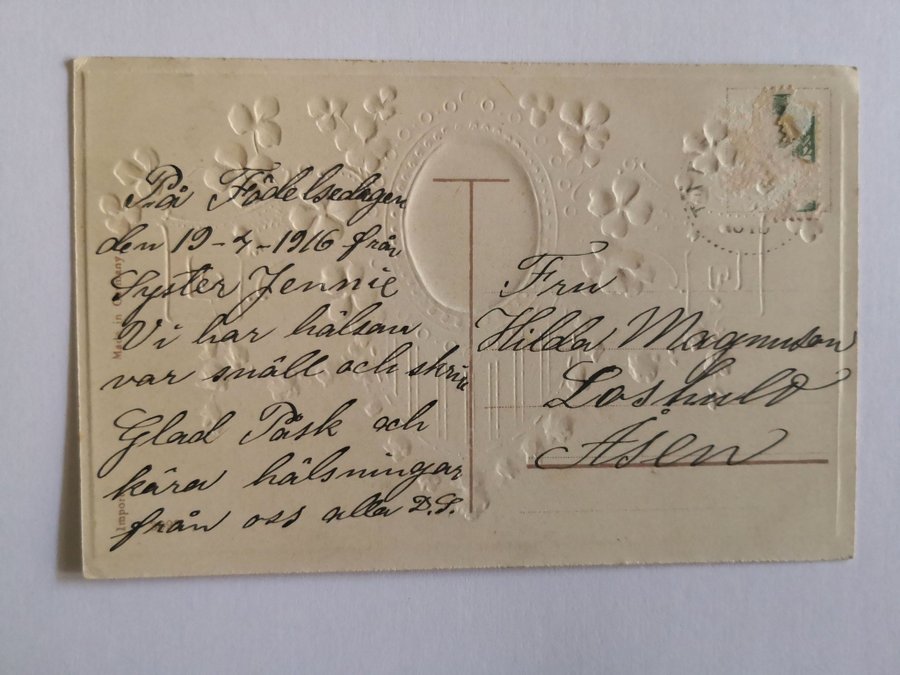 På Födelsedagen
den 19-4-1916 från
Syster Jennie
Vi har hälsan
var snäll och skriv
Glad Påsk och
kära hälsningar
från oss alla D.S.
Fru
Hilda Magnuson
Loshult
Åsen
Made in Germany
Import